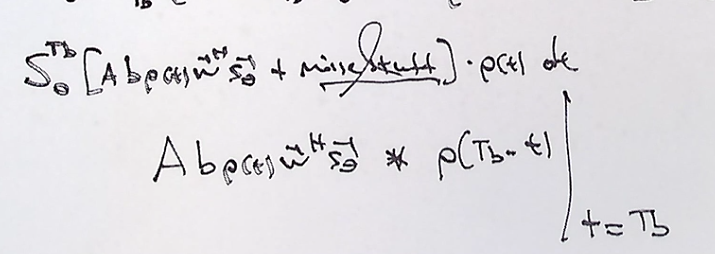 ∫₀^Tb [A b p(t) w⃗^H s⃗_θ + noise stuff] · p(t) dt
A b p(t) w⃗^H s⃗_θ * p(Tb - t) |t = Tb